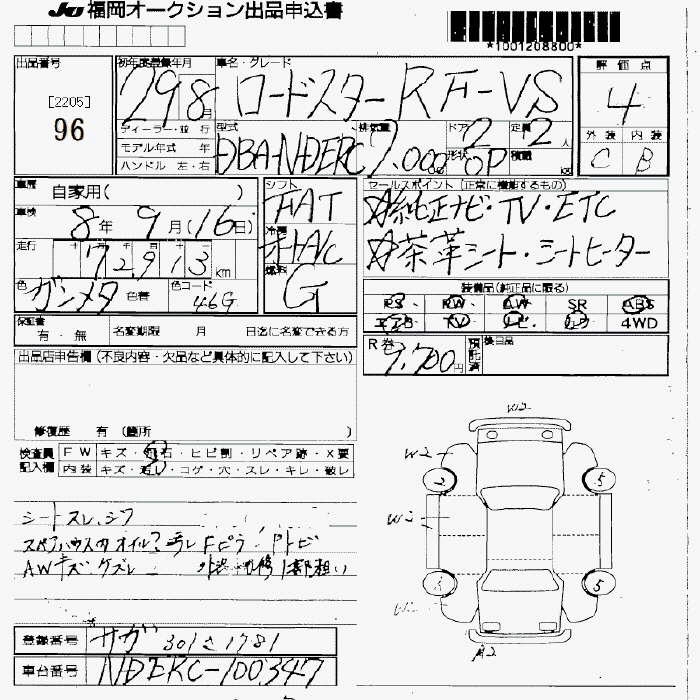 JU 福岡オークション出品申込書
*1001208800*
出品番号
[2205]
96
初年度登録年月
29 8月
車名・グレード
ロードスターRF-VS
評価点
4
外装 内装
C B
ディーラー・並行
モデル年式 年
ハンドル 左・右
型式
DBA-NDERC
排気量
2,000
ドア 2
形状 OP
定員 2人
積載
車歴
自家用( )
車検
8年 9月(16日)
走行
72,913km
色
ガンメタ
色替
色コード
46G
シフト
FAT
冷房
オートA/C
燃料
G
セールスポイント(正常に機能するもの)
☆純正ナビ・TV・ETC
☆茶革シート・シートヒーター
装備品(純正品に限る)
PS PW AW SR ABS
エアB TV ナビ カワ 4WD
保証書
有・無
名変期限 月 日迄に名変できる方
R券
9,700円
預託済
後日品
出品店申告欄(不良内容・欠品など具体的に記入して下さい)
修復歴 有(箇所 )
検査員記入欄
FW キズ・飛石・ヒビ割・リペア跡・X要
内装 キズ・汚レ・コゲ・穴・スレ・キレ・破レ
シートスレ、シワ
AWキズ・ケズレ
W2
W2
2 5
W2
5
A2
登録番号
サガ 301 さ 1781
車台番号
NDERC-100347